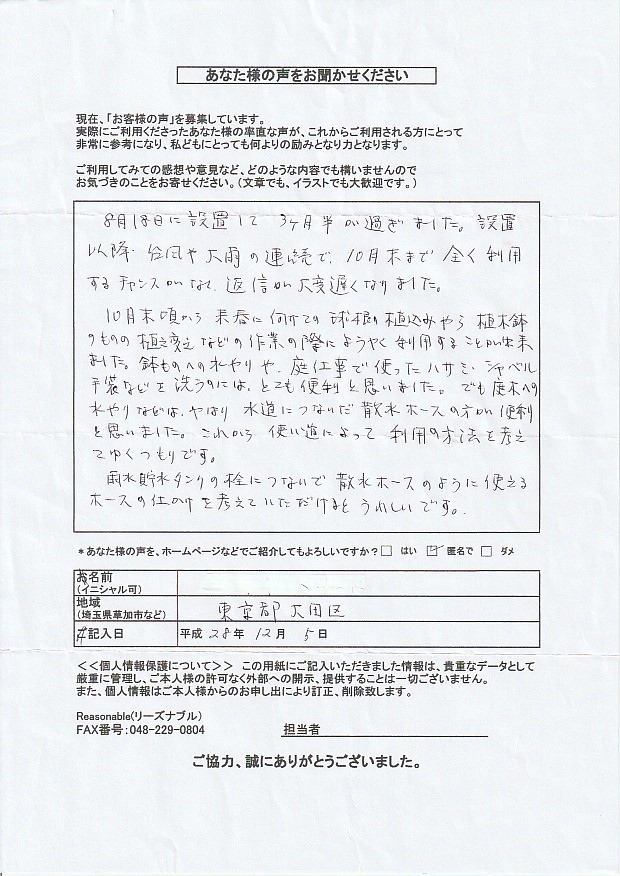 あなた様の声をお聞かせください
現在、「お客様の声」を募集しています。
実際にご利用くださったあなた様の率直な声が、これからご利用される方にとって
非常に参考になり、私どもにとっても何よりの励みとなり力となります。
ご利用してみての感想や意見など、どのような内容でも構いませんので
お気づきのことをお寄せください。（文章でも、イラストでも大歓迎です。）
8月18日に設置して 3ヶ月半が過ぎました。設置
以降、台風や大雨の連続で、10月末まで全く利用
するチャンスがなく、返信が大変遅くなりました。
10月末頃から 来春に向けての 球根の植込みやら 植木鉢
のものの 植え変えなどの作業の際にようやく利用することが出来
ました。鉢ものへの水やりや、庭仕事で使ったハサミ・シャベル
手袋などを洗うのには、とても便利と思いました。でも庭木への
水やりなどは、やはり 水道につないだ 散水ホースの方が便利
と思いました。これから 使い道によって 利用の方法を考え
てゆくつもりです。
雨水貯水タンクの栓につないで 散水ホースのように使える
ホースの仕かけを考えていただけるとうれしいです。
*あなた様の声を、ホームページなどでご紹介してもよろしいですか？□ はい ☑ 匿名で □ ダメ
お名前
（イニシャル可）
地域
（埼玉県草加市など） 東京都 大田区
ご記入日 平成 28年 12月 5日
＜＜個人情報保護について＞＞ この用紙にご記入いただきました情報は、貴重なデータとして
厳重に管理し、ご本人様の許可なく外部への開示、提供することは一切ございません。
また、個人情報はご本人様からのお申し出により訂正、削除致します。
Reasonable(リーズナブル)
FAX番号：048-229-0804 担当者
ご協力、誠にありがとうございました。